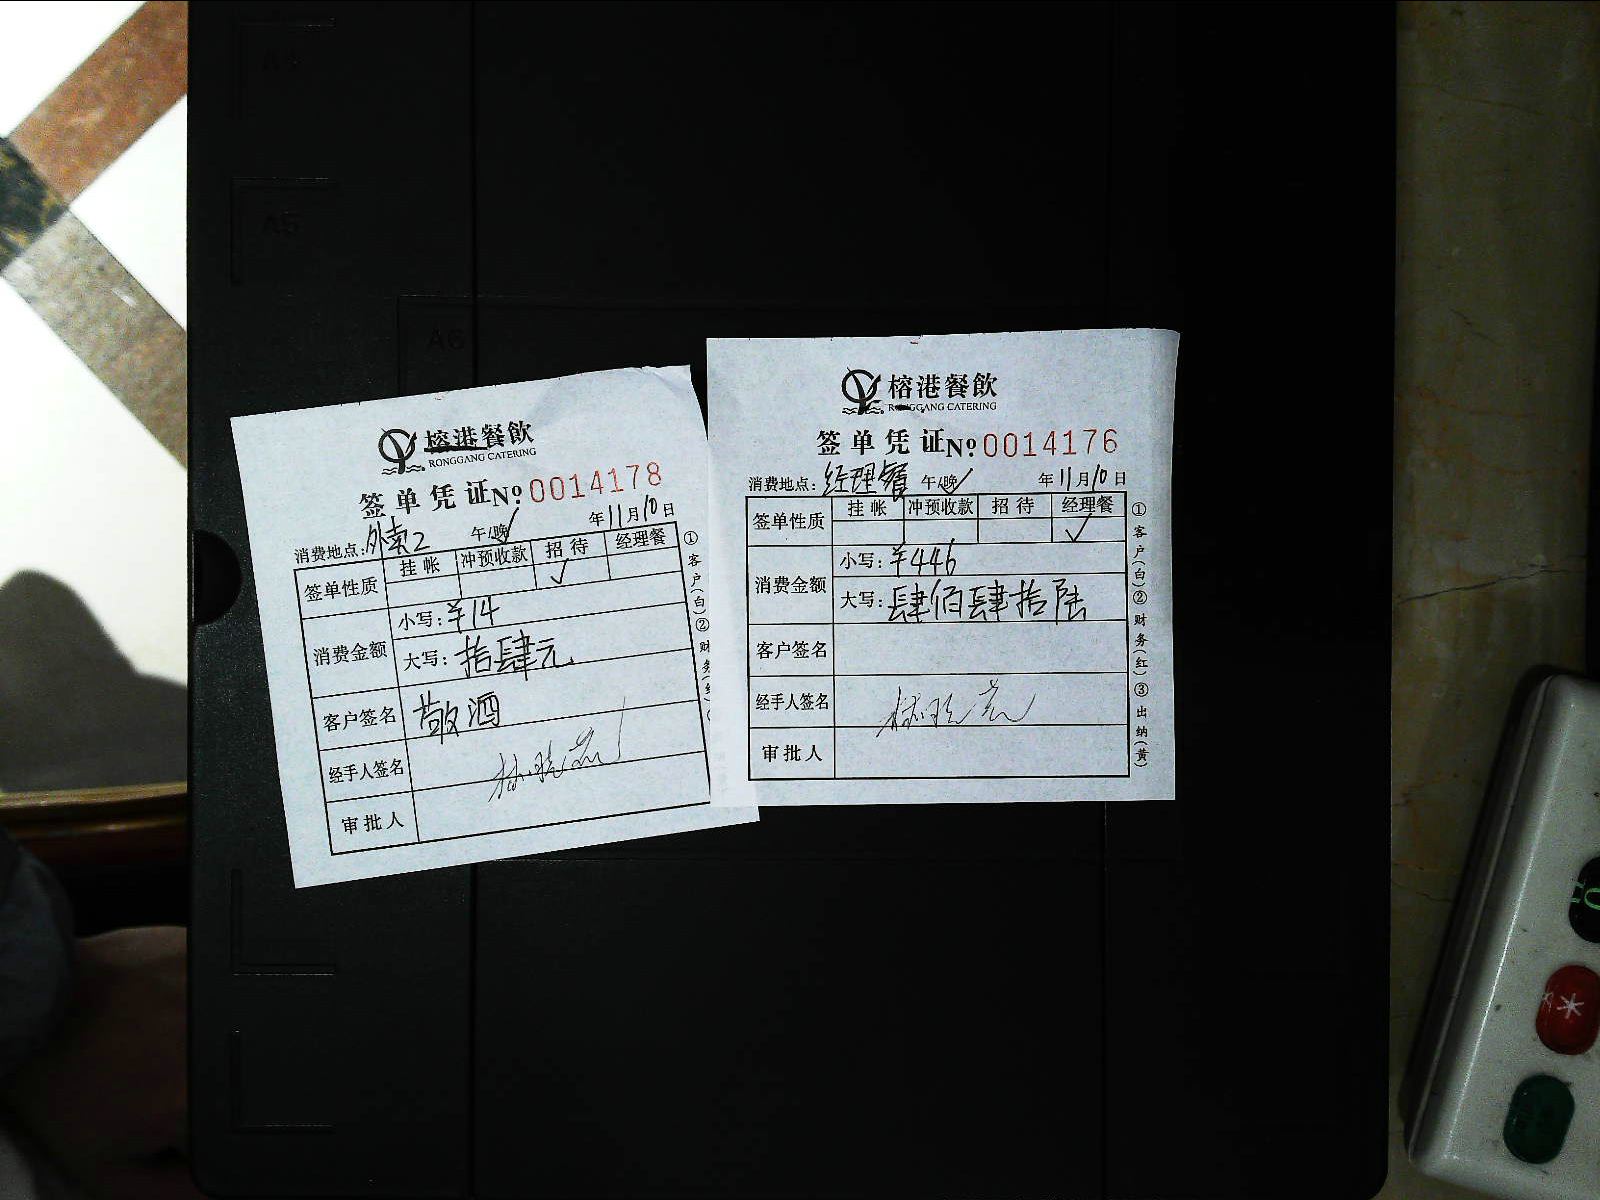 A4
A5
A6
榕港餐飲
RONGGANG CATERING
签单凭证 №0014178
消费地点：外卖2 午/晚✓ 年11月10日
签单性质 挂帐 冲预收款 招待 经理餐
✓
消费金额 小写：¥14
大写：拾肆元
客户签名 敬酒
经手人签名
审批人
①客户(白)②财务(红)
榕港餐飲
RONGGANG CATERING
签单凭证 №0014176
消费地点：经理餐 午/晚✓ 年11月10日
签单性质 挂帐 冲预收款 招待 经理餐
✓
消费金额 小写：¥446
大写：肆佰肆拾陆
客户签名
经手人签名
审批人
①客户(白)②财务(红)③出纳(黄)
*